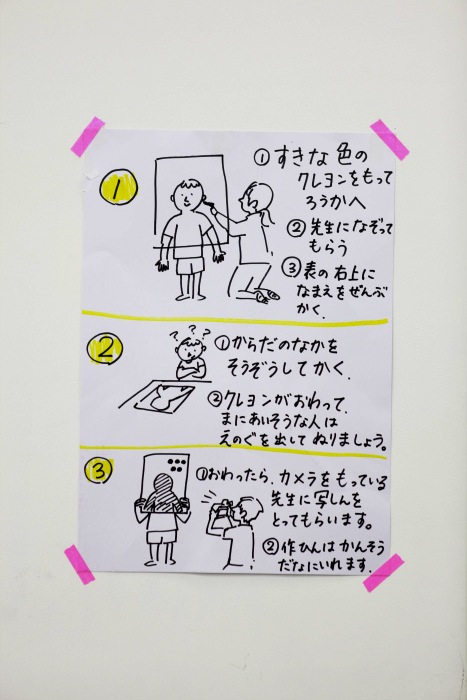 1
① すきな 色の
クレヨンをもって
ろうかへ
② 先生になぞって
もらう
③ 表の 右上に
なまえをぜんぶ
かく.
2
???
① からだのなかを
そうぞうしてかく.
② クレヨンがおわって、
まにあいそうな人は
えのぐを出して ぬりましょう。
3
① おわったら、カメラをもっている
先生に写しんを
とってもらいます。
② 作ひんは かんそう
だなにいれます.